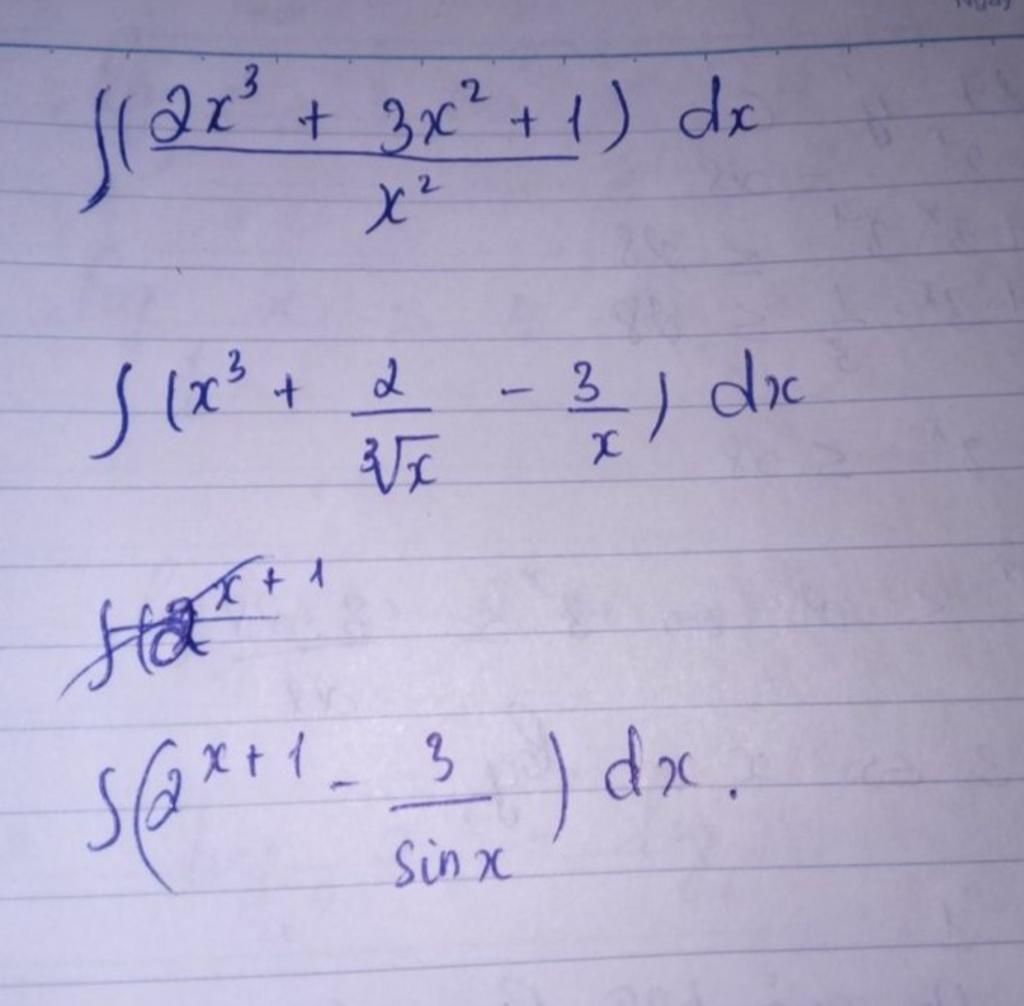 ∫(2x³ + 3x² + 1)/x² dx
∫(x³ + 2/∛x - 3/x) dx
∫(2^(x+1) - 3/sin x) dx.